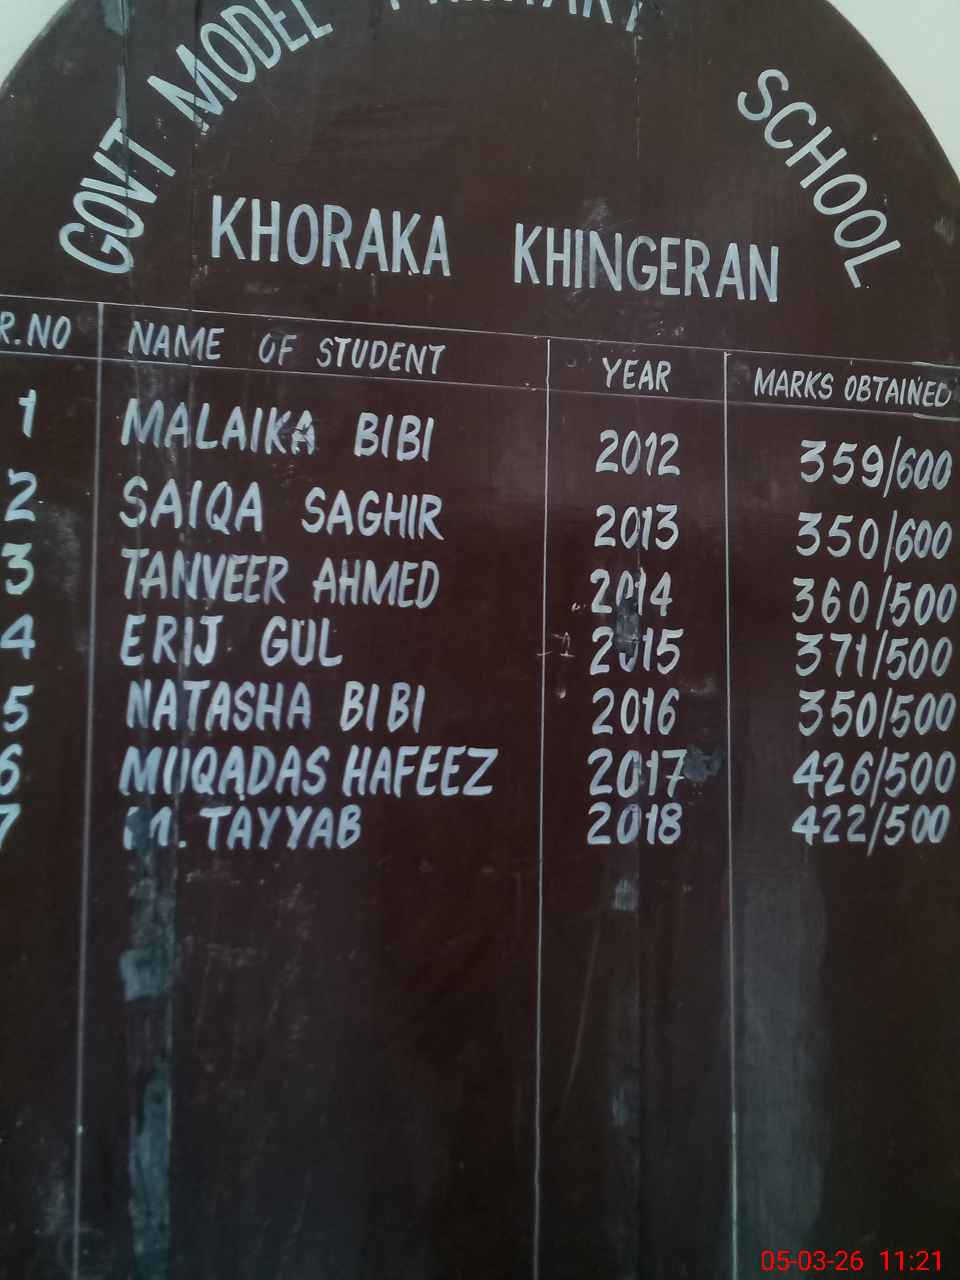 GOVT MODEL PRIMARY SCHOOL
KHORAKA KHINGERAN
R.NO NAME OF STUDENT YEAR MARKS OBTAINED
1 MALAIKA BIBI 2012 359/600
2 SAIQA SAGHIR 2013 350/600
3 TANVEER AHMED 2014 360/500
4 ERIJ GUL 2015 371/500
5 NATASHA BIBI 2016 350/500
6 MUQADAS HAFEEZ 2017 426/500
7 M. TAYYAB 2018 422/500
05-03-26 11:21